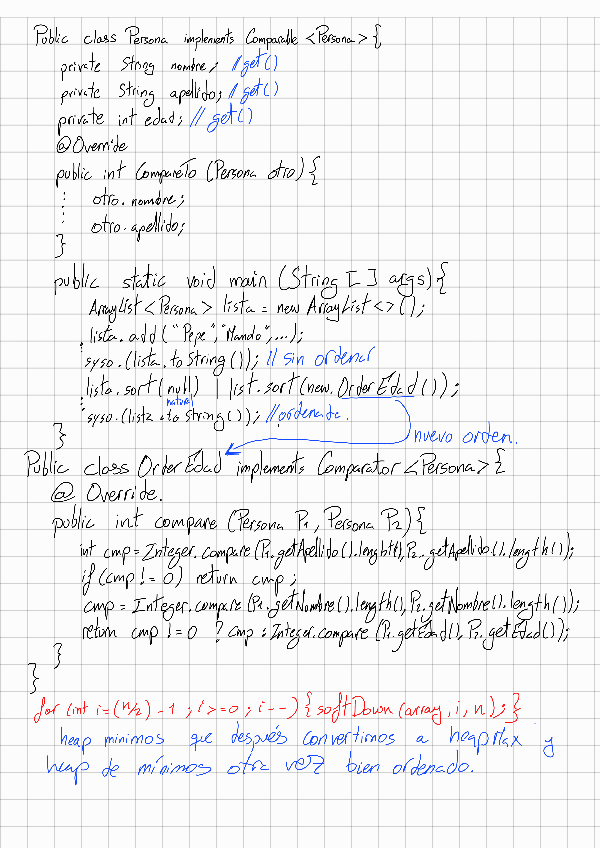 Public class Persona implements Comparable <Persona> {
private String nombre; //get()
private String apellido; //get()
private int edad; // get()
@Override
public int CompareTo (Persona otro) {
otro.nombre;
otro.apellido;
}
public static void main (String [ ] args) {
ArrayList <Persona> lista = new ArrayList <> ();
lista.add ("Pepe", "Mando",...);
syso.(lista.toString()); // sin ordenar
lista.sort (null) | list.sort(new.OrderEdad());
natural
syso.(lista.toString()); //ordenada.
} nuevo orden.
Public class OrderEdad implements Comparator <Persona> {
@ Override.
public int compare (Persona P1, Persona P2) {
int cmp = Integer.compare (P1.getApellido().length(), P2.getApellido().length());
if (cmp != 0) return cmp;
cmp = Integer.compare (P1.getNombre().length(), P2.getNombre().length());
return cmp != 0 ? cmp : Integer.compare (P1.getEdad(), P2.getEdad());
}
}
for (int i=(n/2) -1 ; i>=0 ; i--) { softDown (array, i, n); }
heap minimos que después convertimos a heapMax y
heap de mínimos otra vez bien ordenado.